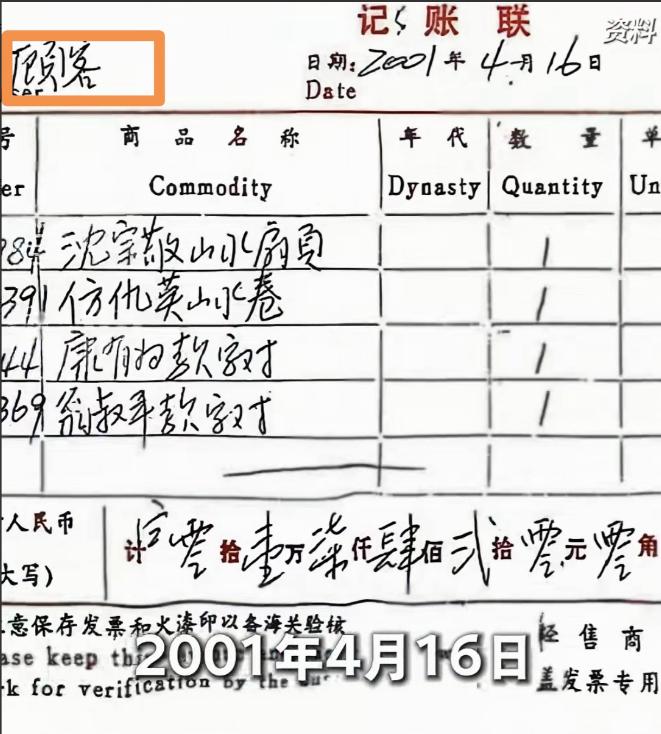 记账联
资料
顾客
ser
日期: 2001年4月16日
Date
号 商品名称 年代 数量 单
er Commodity Dynasty Quantity Un
984 沈宗敬山水扇页 1
391 仿仇英山水卷 1
44 康有为款字对 1
369 翁叔平款字对 1
人民币
大写)
计 零拾壹万柒仟肆佰贰拾零元零角
意保存发票和火漆印以备海关验核
ase keep th
k for verification by the
2001年4月16日
经售商
盖发票专用